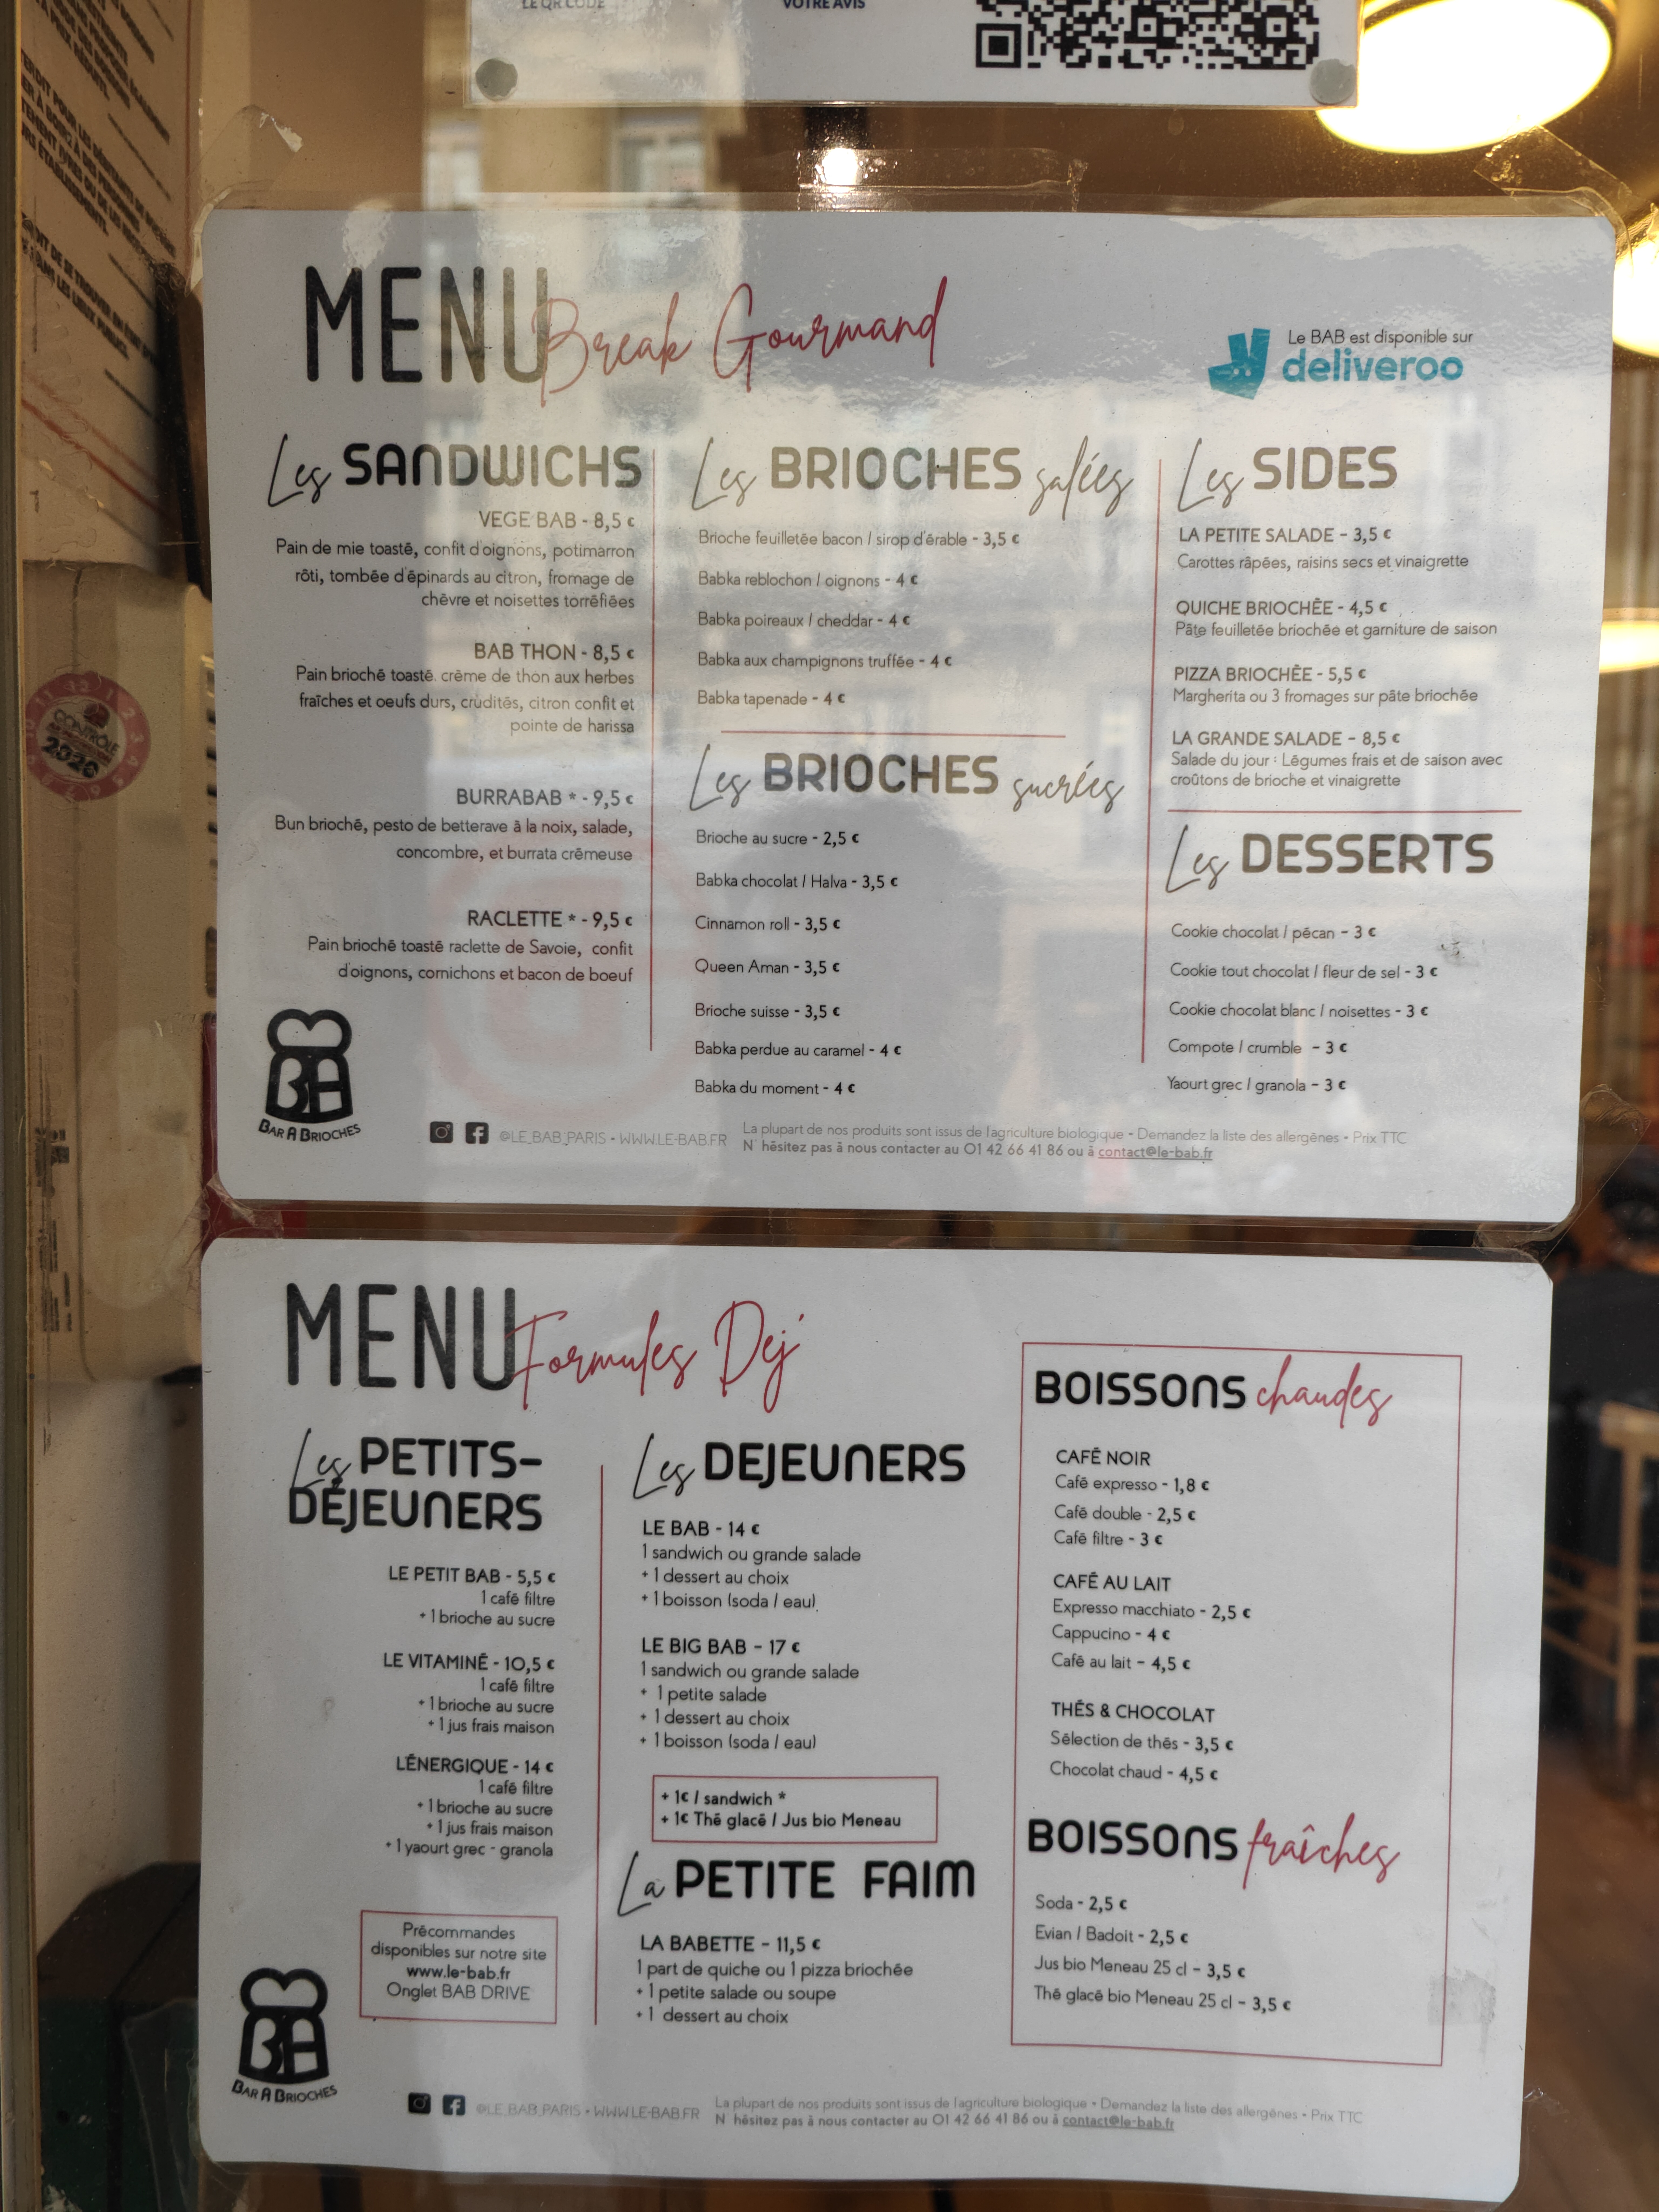 LE QR CODE
VOTRE AVIS
MENU Break Gourmand
Le BAB est disponible sur
deliveroo
Les SANDWICHS
VEGE BAB - 8,5 €
Pain de mie toasté, confit d'oignons, potimarron
rôti, tombée d'épinards au citron, fromage de
chèvre et noisettes torréfiées
BAB THON - 8,5 €
Pain brioché toasté. crème de thon aux herbes
fraîches et oeufs durs, crudités, citron confit et
pointe de harissa
BURRABAB * - 9,5 €
Bun brioché, pesto de betterave à la noix, salade,
concombre, et burrata crémeuse
RACLETTE * - 9,5 €
Pain brioché toasté raclette de Savoie, confit
d'oignons, cornichons et bacon de boeuf
Les BRIOCHES salées
Brioche feuilletée bacon / sirop d'érable - 3,5 €
Babka reblochon / oignons - 4 €
Babka poireaux / cheddar - 4 €
Babka aux champignons truffée - 4 €
Babka tapenade - 4 €
Les BRIOCHES sucrées
Brioche au sucre - 2,5 €
Babka chocolat / Halva - 3,5 €
Cinnamon roll - 3,5 €
Queen Aman - 3,5 €
Brioche suisse - 3,5 €
Babka perdue au caramel - 4 €
Babka du moment - 4 €
Les SIDES
LA PETITE SALADE - 3,5 €
Carottes râpées, raisins secs et vinaigrette
QUICHE BRIOCHÉE - 4,5 €
Pâte feuilletée briochée et garniture de saison
PIZZA BRIOCHÉE - 5,5 €
Margherita ou 3 fromages sur pâte briochée
LA GRANDE SALADE - 8,5 €
Salade du jour : Légumes frais et de saison avec
croûtons de brioche et vinaigrette
Les DESSERTS
Cookie chocolat / pécan - 3 €
Cookie tout chocolat / fleur de sel - 3 €
Cookie chocolat blanc / noisettes - 3 €
Compote / crumble - 3 €
Yaourt grec / granola - 3 €
BAR A BRIOCHES
@LE_BAB_PARIS - WWW.LE-BAB.FR
La plupart de nos produits sont issus de l'agriculture biologique - Demandez la liste des allergènes - Prix TTC
N' hésitez pas à nous contacter au 01 42 66 41 86 ou à contact@le-bab.fr
CONTRÔLE
2020
MENU Formules Dej'
Les PETITS-
DÉJEUNERS
LE PETIT BAB - 5,5 €
1 café filtre
+ 1 brioche au sucre
LE VITAMINÉ - 10,5 €
1 café filtre
+ 1 brioche au sucre
+ 1 jus frais maison
L'ÉNERGIQUE - 14 €
1 café filtre
+ 1 brioche au sucre
+ 1 jus frais maison
+ 1 yaourt grec - granola
Précommandes
disponibles sur notre site
www.le-bab.fr
Onglet BAB DRIVE
Les DEJEUNERS
LE BAB - 14 €
1 sandwich ou grande salade
+ 1 dessert au choix
+ 1 boisson (soda / eau)
LE BIG BAB - 17 €
1 sandwich ou grande salade
+ 1 petite salade
+ 1 dessert au choix
+ 1 boisson (soda / eau)
+ 1€ / sandwich *
+ 1€ Thé glacé / Jus bio Meneau
La PETITE FAIM
LA BABETTE - 11,5 €
1 part de quiche ou 1 pizza briochée
+ 1 petite salade ou soupe
+ 1 dessert au choix
BOISSONS chaudes
CAFÉ NOIR
Café expresso - 1,8 €
Café double - 2,5 €
Café filtre - 3 €
CAFÉ AU LAIT
Expresso macchiato - 2,5 €
Cappucino - 4 €
Café au lait - 4,5 €
THÉS & CHOCOLAT
Sélection de thés - 3,5 €
Chocolat chaud - 4,5 €
BOISSONS fraîches
Soda - 2,5 €
Evian / Badoit - 2,5 €
Jus bio Meneau 25 cl - 3,5 €
Thé glacé bio Meneau 25 cl - 3,5 €
BAR A BRIOCHES
@LE_BAB_PARIS - WWW.LE-BAB.FR
La plupart de nos produits sont issus de l'agriculture biologique - Demandez la liste des allergènes - Prix TTC
N' hésitez pas à nous contacter au 01 42 66 41 86 ou à contact@le-bab.fr